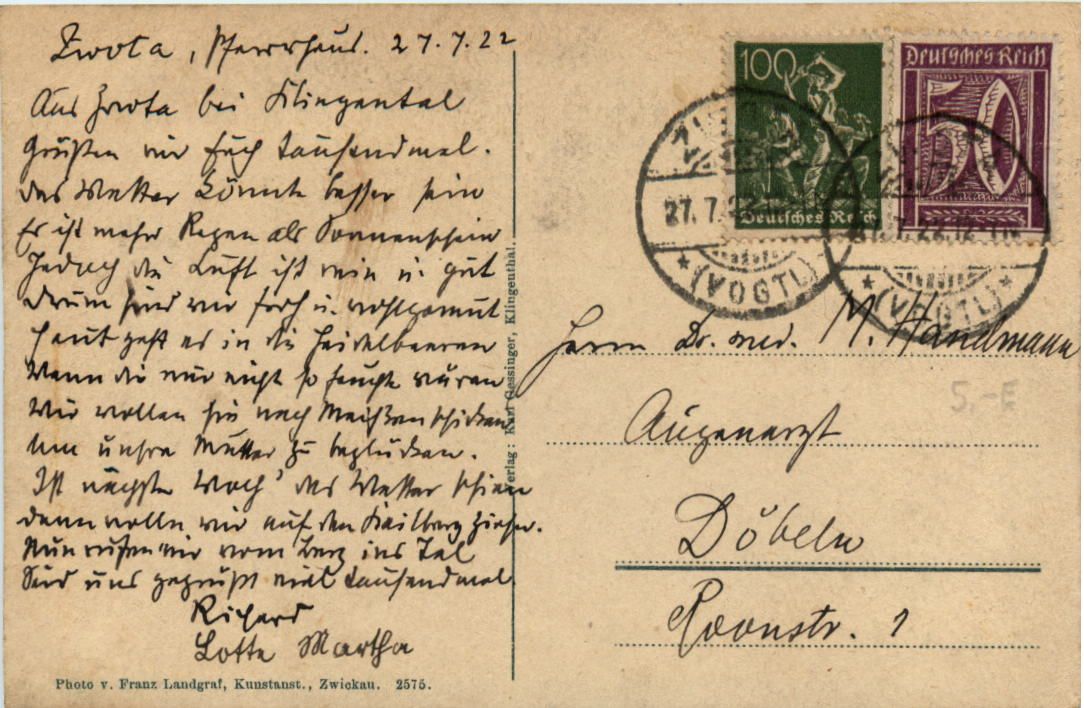 Zwota, Pfarrhaus. 27.7.22
Aus Zwota bei Klingental
Grüßen wir Euch tausendmal.
Das Wetter könnte besser sein
Es ist mehr Regen als Sonnenschein
Jedoch die Luft ist rein u. gut
Drum sind wir froh u. wohlgemut
Heut geht es in die Heidelbeeren
Wenn die nur nicht so feucht wären
Wir wollen sie nach Meißen schicken
Um unsre Mutter zu beglücken.
Ist nächste Woch' das Wetter schön
dann wolln wir auf den Keilberg ziehn.
Nun rufen wir vom Berg ins Tal
Seid uns gegrüßt viel tausendmal
Richard
Lotte Martha
Photo v. Franz Landgraf, Kunstanst., Zwickau. 2575.
Verlag: Karl Gessinger, Klingenthal.
100
Deutsches Reich
Deutsches Reich
50
27. 7.
(VOGTL)
7. 22. 12
(VOGTL)
Herrn Dr. med. M. Handmann
5,-E
Augenarzt
Döbeln
Roonstr. 1